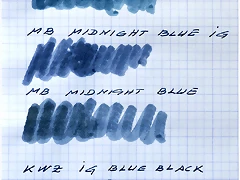 MB MIDNIGHT BLUE iG
MB MIDNIGHT BLUE
KWZ iG BLUE BLACK